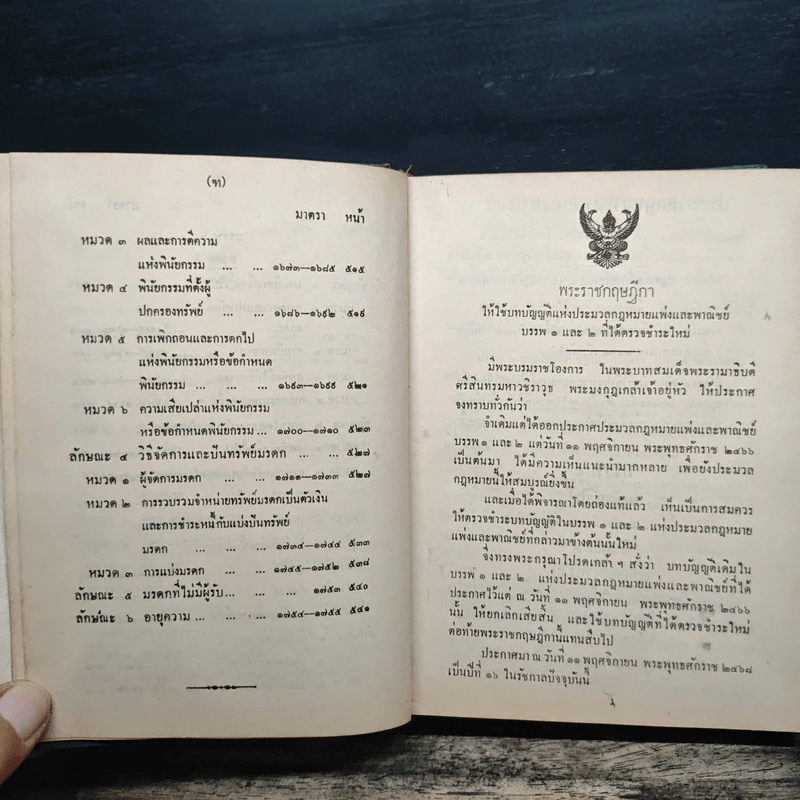 (ฑ)
มาตรา หน้า
หมวด ๓ ผลและการตีความ
แห่งพินัยกรรม ... ... ๑๖๗๓—๑๖๘๕ ๕๑๕
หมวด ๔ พินัยกรรมที่ตั้งผู้
ปกครองทรัพย์ ... ... ๑๖๘๖—๑๖๙๒ ๕๑๙
หมวด ๕ การเพิกถอนและการตกไป
แห่งพินัยกรรมหรือข้อกำหนด
พินัยกรรม ... ... ... ๑๖๙๓—๑๖๙๙ ๕๒๑
หมวด ๖ ความเสียเปล่าแห่งพินัยกรรม
หรือข้อกำหนดพินัยกรรม ... ๑๗๐๐—๑๗๑๐ ๕๒๓
ลักษณะ ๔ วิธีจัดการและปันทรัพย์มรดก ... ... ๕๒๗
หมวด ๑ ผู้จัดการมรดก ... ... ๑๗๑๑—๑๗๓๓ ๕๒๗
หมวด ๒ การรวบรวมจำหน่ายทรัพย์มรดกเป็นตัวเงิน
และการชำระหนี้กับแบ่งปันทรัพย์
มรดก ... ... ... ๑๗๓๔—๑๗๔๔ ๕๓๓
หมวด ๓ การแบ่งมรดก ... ... ๑๗๔๕—๑๗๕๒ ๕๓๘
ลักษณะ ๕ มรดกที่ไม่มีผู้รับ... ... ... ๑๗๕๓ ๕๔๐
ลักษณะ ๖ อายุความ ... ... ... ๑๗๕๔—๑๗๕๕ ๕๔๑
พระราชกฤษฎีกา
ให้ใช้บทบัญญัติแห่งประมวลกฎหมายแพ่งและพาณิชย์
บรรพ ๑ และ ๒ ที่ได้ตรวจชำระใหม่
มีพระบรมราชโองการ ในพระบาทสมเด็จพระรามาธิบดี
ศรีสินทรมหาวชิราวุธ พระมงกุฎเกล้าเจ้าอยู่หัว ให้ประกาศ
จงทราบทั่วกันว่า
จำเดิมแต่ได้ออกประกาศประมวลกฎหมายแพ่งและพาณิชย์
บรรพ ๑ และ ๒ แต่วันที่ ๑๑ พฤศจิกายน พระพุทธศักราช ๒๔๖๖
เป็นต้นมา ได้มีความเห็นแนะนำมากหลาย เพื่อยังประมวล
กฎหมายนี้ให้สมบูรณ์ยิ่งขึ้น
และเมื่อได้พิจารณาโดยถ่องแท้แล้ว เห็นเป็นการสมควร
ให้ตรวจชำระบทบัญญัติในบรรพ ๑ และ ๒ แห่งประมวลกฎหมาย
แพ่งและพาณิชย์ที่กล่าวมาข้างต้นนั้นใหม่
จึ่งทรงพระกรุณาโปรดเกล้า ฯ สั่งว่า บทบัญญัติเดิมใน
บรรพ ๑ และ ๒ แห่งประมวลกฎหมายแพ่งและพาณิชย์ที่ได้
ประกาศไว้แต่ ณ วันที่ ๑๑ พฤศจิกายน พระพุทธศักราช ๒๔๖๖
นั้น ให้ยกเลิกเสียสิ้น และใช้บทบัญญัติที่ได้ตรวจชำระใหม่
ต่อท้ายพระราชกฤษฎีกานี้แทนสืบไป
ประกาศมา ณ วันที่ ๑๑ พฤศจิกายน พระพุทธศักราช ๒๔๖๘
เป็นปีที่ ๑๖ ในรัชกาลปัจจุบันนี้